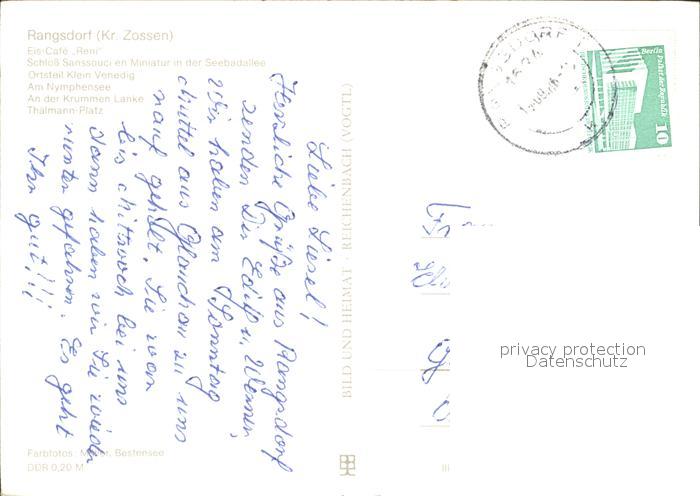 Rangsdorf (Kr. Zossen)
Eis-Café „Reni“
Schloß Sanssouci en Miniatur in der Seebadallee
Ortsteil Klein Venedig
Am Nymphensee
An der Krummen Lanke
Thälmann-Platz
Liebe Liesel!
Herzliche Grüße aus Rangsdorf
senden Dir Edith u. Werner,
Wir haben am Sonntag
Muttel aus Glauchau zu uns
rauf geholt. Sie war
bis Mittwoch bei uns
dann haben wir Sie wieder
runter gefahren. Es geht
Ihr gut!!!
Farbfotos: Bestensee
DDR 0,20 M
BILD UND HEIMAT · REICHENBACH (VOGTL)
RANGSDORF
Berlin
Palast der Republik
10
privacy protection
Datenschutz